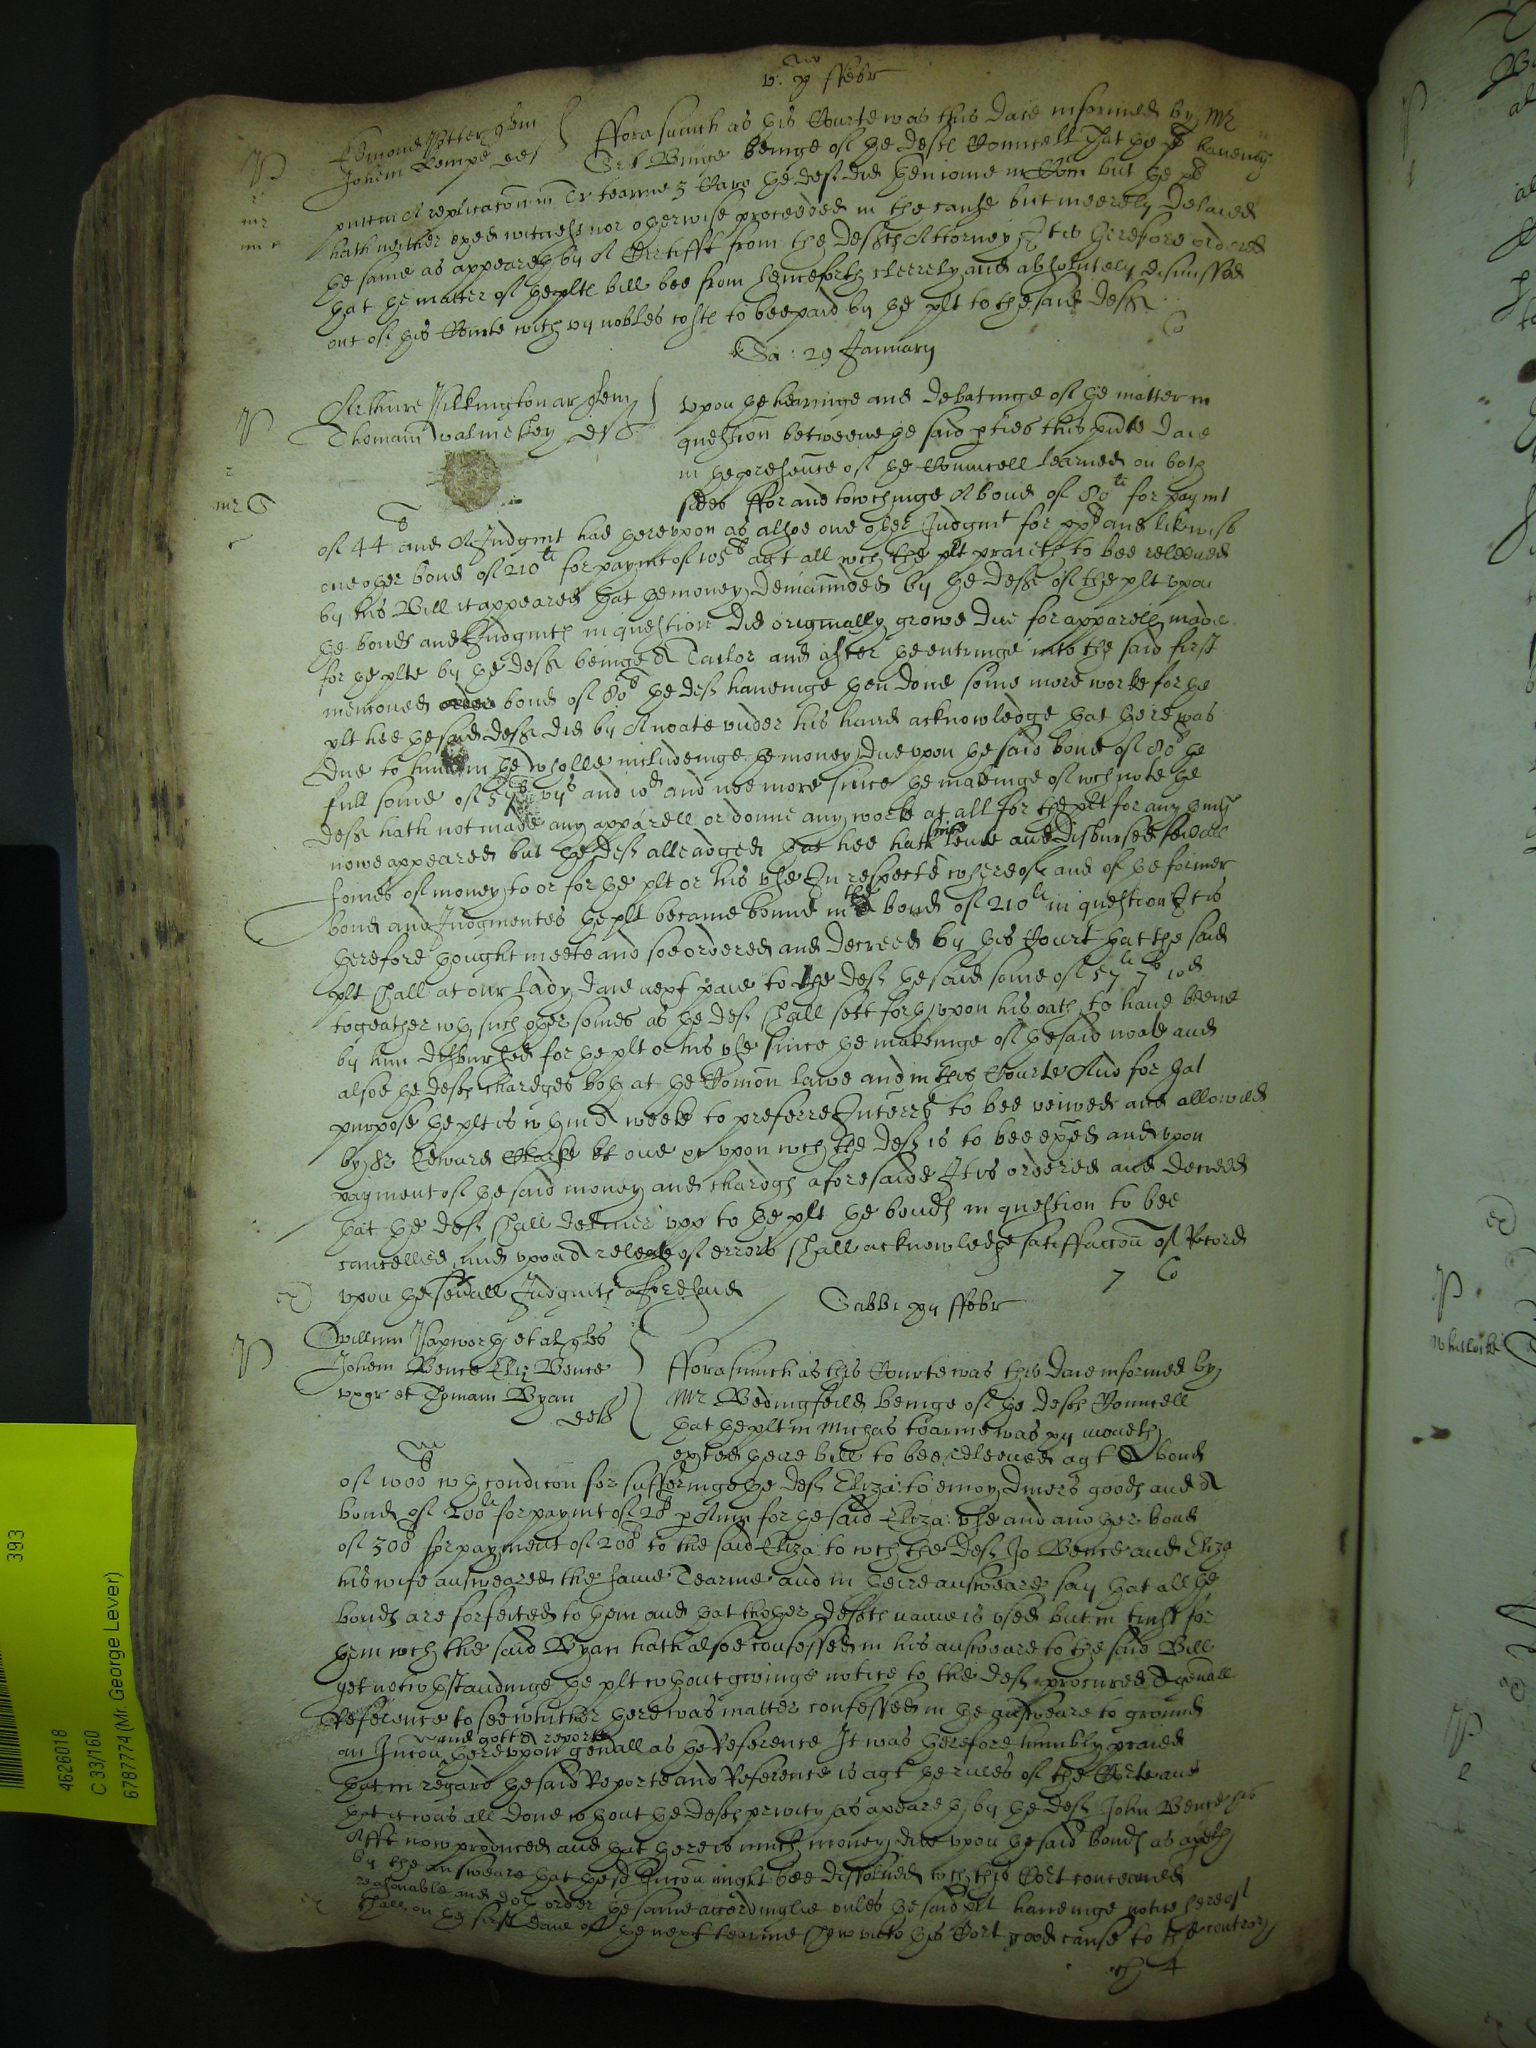 v: die ffebr
Edmond Potter quer
Johem Kempe def
fforasmuch as this Courte was this daie informed by Mr
Bunce beinge of the defts Councell that the plt haveing
put in A replicacon in Tr tearme 3 Caro the deft did then ioine in Com but the plt
hath neither exed witnesses nor otherwise proceeded in the cause but meerely delaied
the same as appeareth by A Certifft from the defts Attorney It is therefore ordered
that the matter of the plts bill bee from henceforth cleerely and absolutely dismissed
out of this Courte with vij nobles costs to bee paid by the plt to the said deft
Co
Sa: 29 January
Arthure Pilkington ar quer
Thomam Walmesley def
Vpon the hearinge and debatinge of the matter in
question betweene the said pties this pnte daie
in the presence of the Councell learned on both
sides ffor and towchinge A bond of 80li for paymt
of 44li and A Judgmt had therevpon as alsoe one other Judgmt for and likewise
one other bond of 210li for paymt of 105li agt all wch the plt praieth to bee releeued
by his Bill it appeared that the money demaunded by the deft of the plt vpon
the bonds and Judgmts in question did originally growe due for apparell made
for the plte by the deft beinge A Tailor and after the entringe into the said first
menconed bond of 80li the deft haueinge then done some more worke for the
plt hee the said deft did by A noate vnder his hand acknowledge that there was
due to him in the wholle includeinge the money due vpon the said bond of 80li the
full some of 57li vijs and 10d and noe more since the makeinge of wch note the
deft hath not made any apparell or donne any worke at all for the plt for any thing
nowe appeared but the deft alleadged that hee hath lent and disbursed seuall
somes of money to or for the plt or his vse In respecte whereof and of the former
bond and Judgmentes the plt became bound in the bond of 210li in question It is
therefore thought meete and soe ordered and decreed by this Court that the said
plt shall at our Lady daie next paie to the deft the said some of 57li 7s 10d
togeather wth such other somes as the deft shall sett forth vpon his oath to haue beene
by him disbursed for the plt or his vse since the makeinge of the said noate and
alsoe the defts chardges both at the Comon lawe and in this Courte And for that
purpose the plt is wthin A weeke to preferre Interrs to bee veiwed and allowed
by Sr Edward Clarke kt one &c vpon wch the deft is to bee exed and vpon
payment of the said money and chardgs aforesaide It is ordered and decreed
that the deft shall deliuer vpp to the plt the bonds in question to bee
cancelled and vpon A release of errors shall acknowledge satisfaccon of Record
vpon the seuall Judgmts aforesaid
7 Co
Sabbi ffebr
Willim Papworth et al quer
Johem Bence Eliz Bence
vxor et Thomam Byan
defts
fforasmuch as this Courte was this daie informed by
Mr Bedingfeild beinge of the defts Councell
that the plt in Michas tearme was moneth
exhited there bill to bee releeued agt A bond
of 1000li wth condicon for sufferinge the deft Eliza: to enioy divers goods and A
bond of 200li for paymt of 20li p Ann for the said Eliza: vse and another bond
of 300li for payment of 200li to the said Eliza: to wch the deft Jo Bence and Eliza
his wife answeared the same Tearme and in theire answeare say that all the
bonds are forfeited to them and that thother defts name is vsed but in trust for
them wch the said Byan hath alsoe confessed in his answeare to the said Bill
yet notwthstandinge the plt wthout givinge notice to the deft procured A genall
Reference to see whither there was matter confessed in the answeare to ground
and gott A reporte
an Iniuncon therevpon genall as the Reference It was therefore humbly praied
that in regard the said Reporte and Reference is agt the rules of the Courte and
that it was all done wthout the defts privity as apeareth by the deft John Bence his
Afft now produced and that there is much money due vpon the said bonds as appeth
by the answeare that the sd Iniuncon might bee dissolued wch this Cort conceaued
reasonable and doth order the same accordinglie vnles the said plt haueinge notice hereof
shall on the first daie of the next tearme shew vnto this Cort good cause to the contrary
4
393
4626018
C 33/160
6787774 (Mr. George Lever)